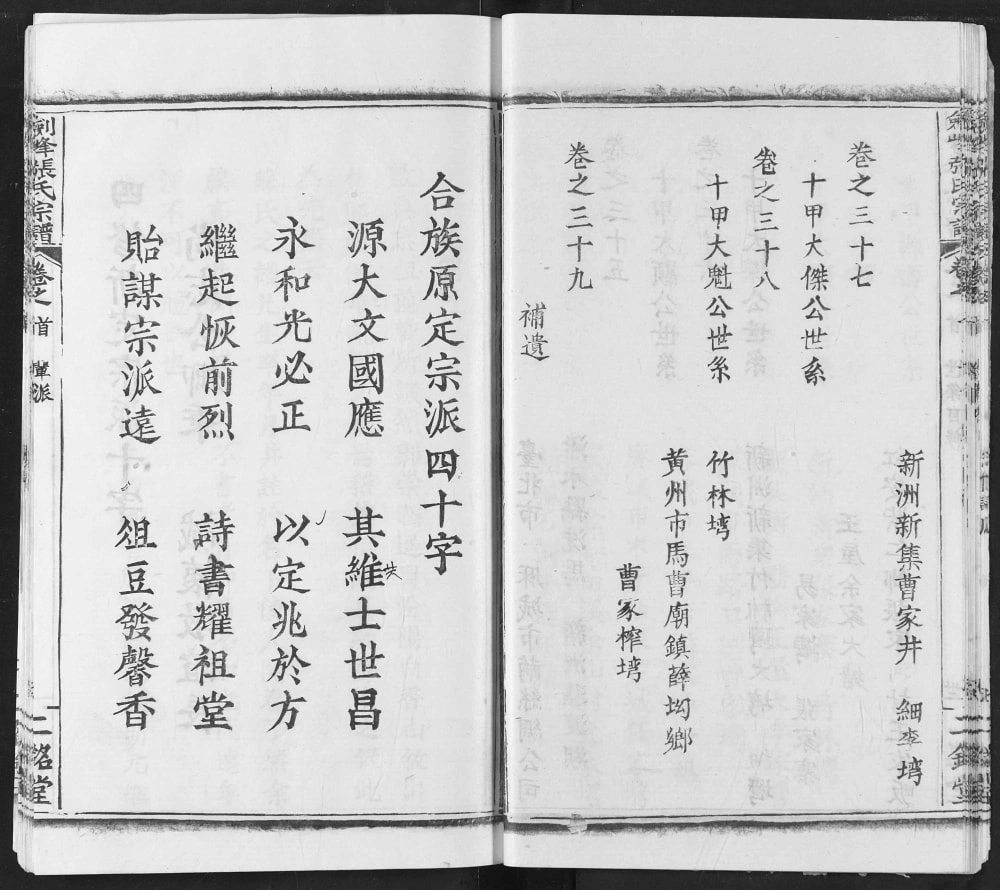 新洲新集曹家井 細李塆
卷之三十七
十甲大傑公世系
卷之三十八
十甲大魁公世系
竹林塆
黃州市馬曹廟鎮薛坳鄉
曹冢榨塆
卷之三十九
補遺
合族原定宗派四十字
源大文國應 其維士世昌
永和光必正 以定兆於方
繼起恢前烈 詩書耀祖堂
貽謀宗派遠 俎豆發馨香
劍峰張氏宗譜 卷之首 軰派 二銘堂